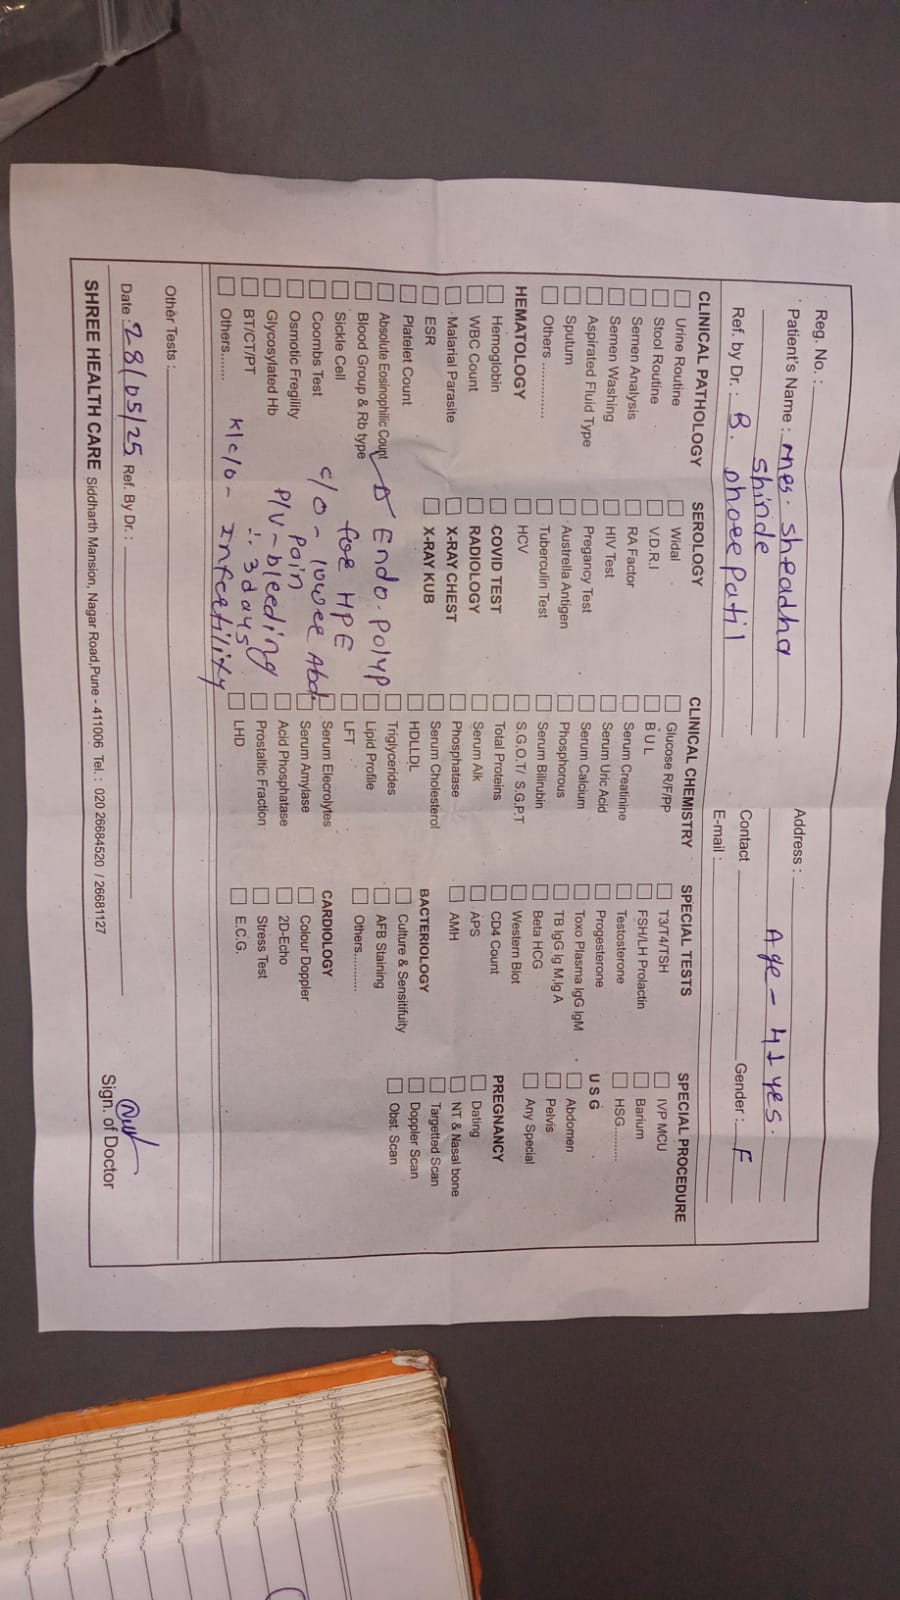 Reg. No. :
Patient's Name : mrs. shradha
shinde
Ref. by Dr. : B.
Patil
Address :
Age - 41 yrs.
Contact
Gender : F
E-mail :
CLINICAL PATHOLOGY
Urine Routine
Stool Routine
Semen Analysis
Semen Washing
Aspirated Fluid Type
Sputum
Others .............
HEMATOLOGY
Hemoglobin
WBC Count
Malarial Parasite
ESR
Platelet Count
Absolute Eosinophilic Count
Blood Group & Rb type
Sickle Cell
Coombs Test
Osmotic Fregility
Glycosylated Hb
BT/CT/PT
Others.......
SEROLOGY
Widal
V.D.R.I
RA Factor
HIV Test
Pregancy Test
Austrella Antigen
Tuberculin Test
HCV
COVID TEST
RADIOLOGY
X-RAY CHEST
X-RAY KUB
Endo. Polyp
for HPE
c/o - lower Abd.
pain
P/V - bleeding
∴ 3 days
k/c/o - Infertility
CLINICAL CHEMISTRY
Glucose R/F/PP
B U L
Serum Creatinine
Serum Uric Acid
Serum Calcium
Phosphorous
Serum Bilirubin
S.G.O.T/ S.G.P.T
Total Proteins
Serum Alk
Phosphatase
Serum Cholesterol
HDLLDL
Triglycerides
Lipid Profile
LFT
Serum Elecrolytes
Serum Amylase
Acid Phosphatase
Prostaltic Fraction
LHD
SPECIAL TESTS
T3/T4/TSH
FSH/LH Prolactin
Testosterone
Progesterone
Toxo Plasma IgG IgM
TB IgG Ig M,Ig A
Beta HCG
Western Blot
CD4 Count
APS
AMH
BACTERIOLOGY
Culture & Sensitifuity
AFB Staining
Others...........
CARDIOLOGY
Colour Doppler
2D-Echo
Stress Test
E.C.G.
SPECIAL PROCEDURE
IVP MCU
Barium
HSG..........
U S G
Abdomen
Pelvis
Any Special
PREGNANCY
Dating
NT & Nasal bone
Targetted Scan
Doppler Scan
Obst. Scan
Other Tests :
Date : 28/05/25 Ref. By Dr. :
Sign. of Doctor
SHREE HEALTH CARE Siddharth Mansion, Nagar Road,Pune - 411006 Tel. : 020 26684520 / 26681127